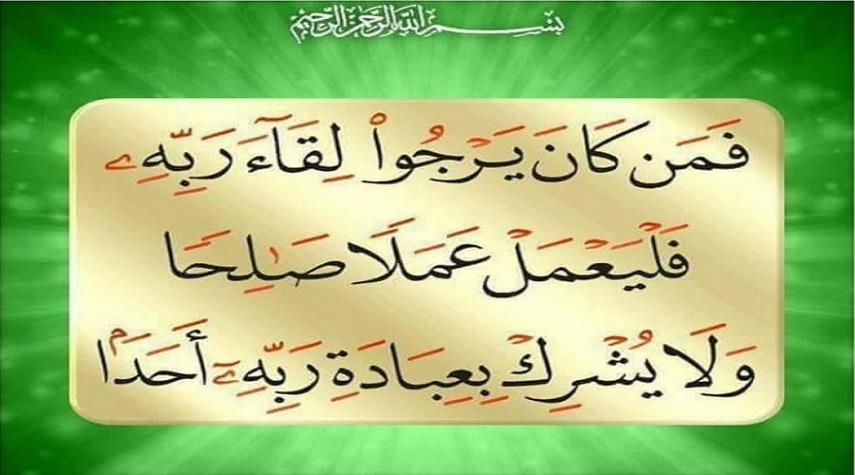 بسم الله الرحمن الرحيم
فَمَن كَانَ يَرْجُوا۟ لِقَآءَ رَبِّهِۦ
فَلْيَعْمَلْ عَمَلًا صَـٰلِحًا
وَلَا يُشْرِكْ بِعِبَادَةِ رَبِّهِۦٓ أَحَدَۢا